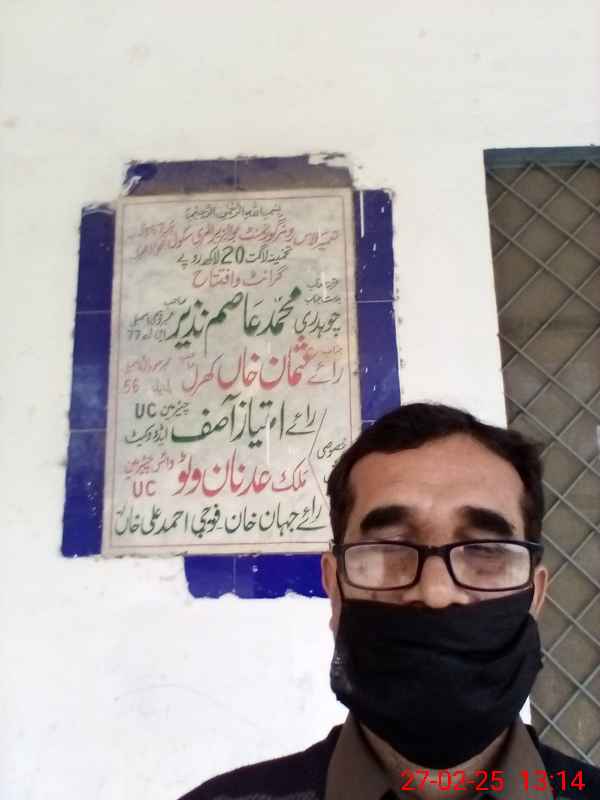 بسم اللہ الرحمٰن الرحیم
تعمیر کلاس رومز گورنمنٹ بوائز پرائمری سکول
تخمینہ لاگت 20 لاکھ روپے
گرانٹ و افتتاح
چوہدری محمد عاصم نذیر صاحب
77
جناب رائے عثمان خاں کھرل
56
رائے امتیاز آصف چیئرمین UC
ایڈووکیٹ
خصوصی
ملک عدنان وٹو وائس چیئرمین UC
رائے جہان خان۔ فوجی احمد علی خاں
27-02-25 13:14